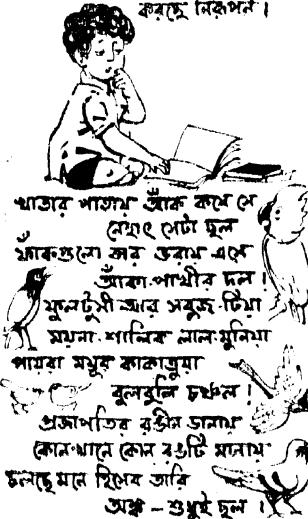 করছে নিরূপন।
খাতার পাতায় আঁক কষে সে
নেহাৎ সেটা ছল
ফাঁকগুলো তার ভরায় এসে
আঁকা-পাখীর দল!
ফুলটুসী আর সবুজ টিয়া
ময়না-শালিক লাল-মুনিয়া
পায়রা ময়ূর কাকাতুয়া
বুলবুলি চঞ্চল!
প্রজাপতির রঙীন ডানায়
কোনখানে কোন রঙটি মানায়
চলছে মনে হিসেব তারি
অঙ্ক - শুধুই ছল!